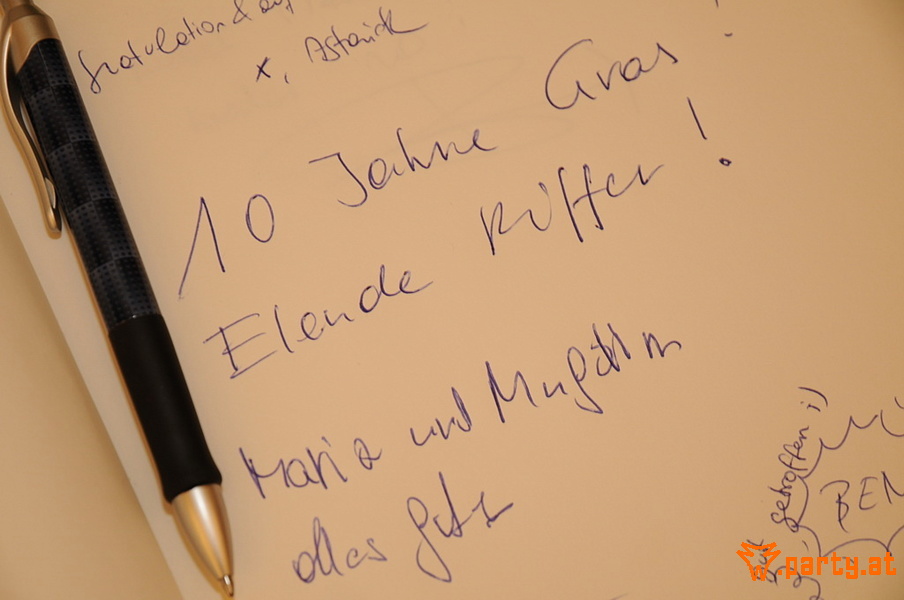 gratulation & auf
x, Astarick
10 Jahre Gras!
Elende Kiffer!
Maria und
alles Gute
gut getroffen ;)
BEN
.party.at